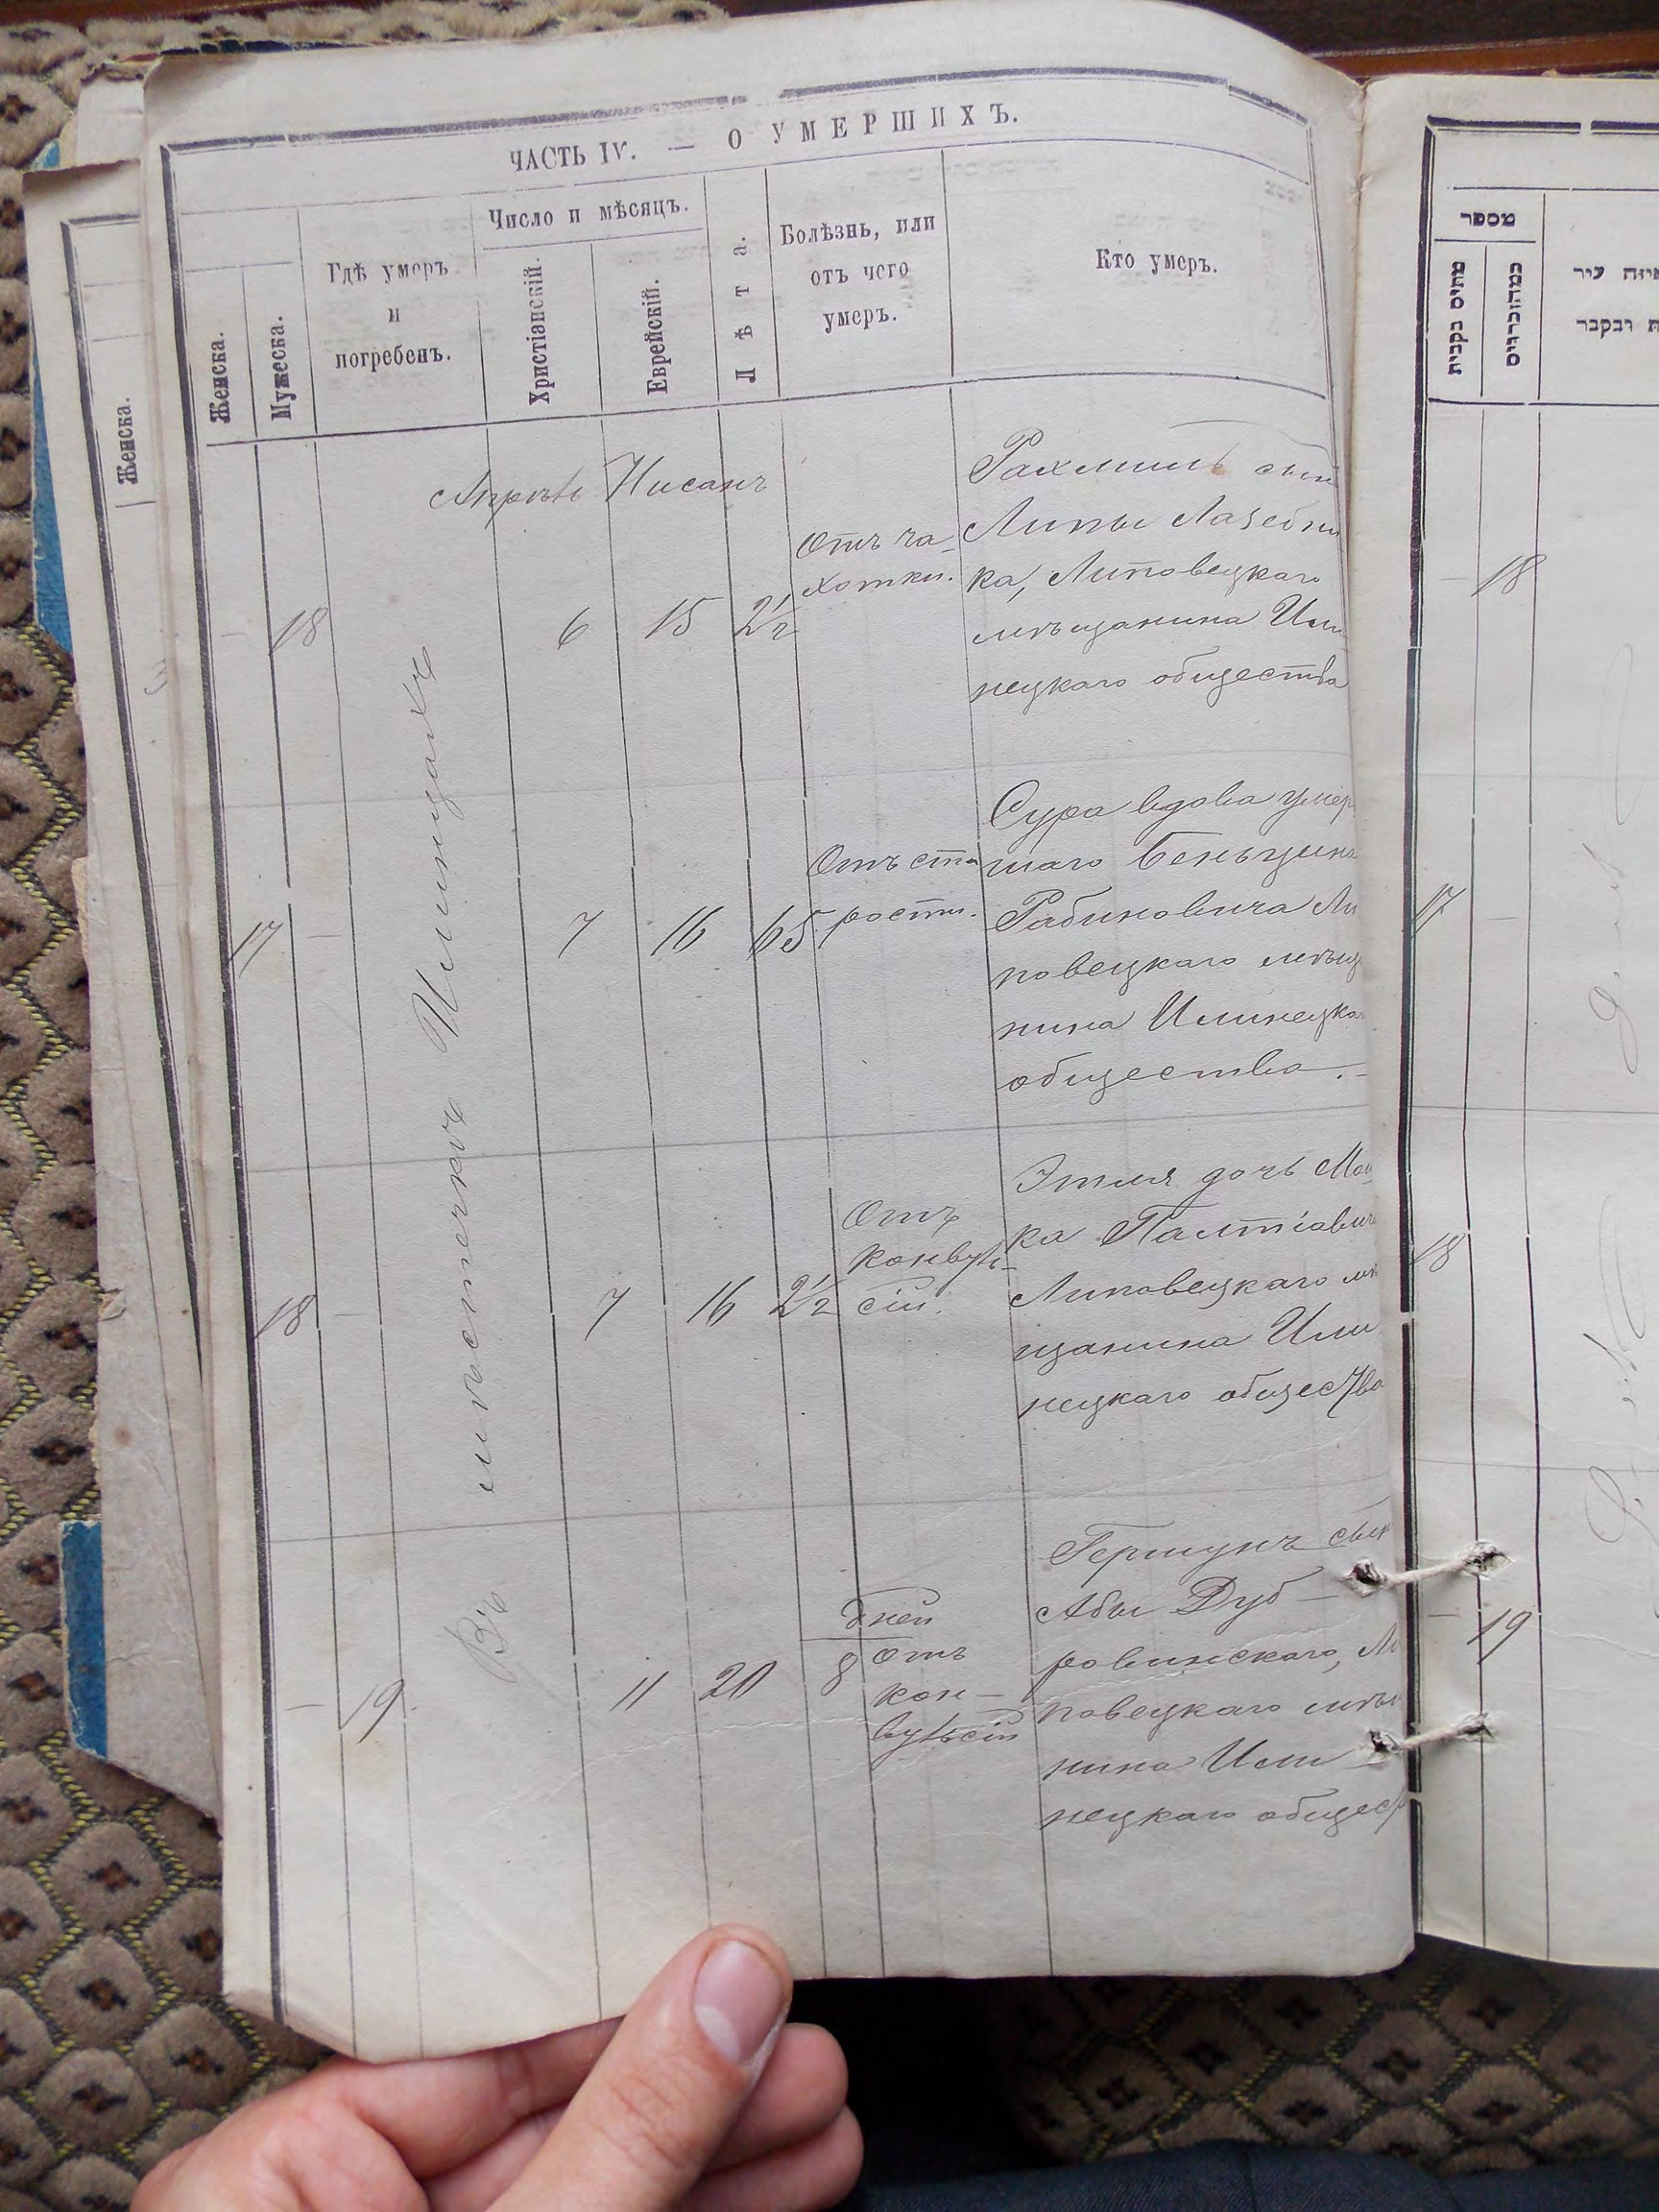 ЧАСТЬ IV. — О УМЕРШИХЪ.
Женска.
Женска.
Мужеска.
Гдѣ умеръ
и
погребенъ.
Число и мѣсяцъ.
Христіанскій.
Еврейскій.
Лѣта.
Болѣзнь, или
отъ чего
умеръ.
Кто умеръ.
Въ мѣстечкѣ Илинцахъ
Апрѣль Нисанъ
— 18 6 15 2½
Отъ ча-
хотки.
Рахмиль сынъ
Липы Лазебни
ка, Липовецкаго
мѣщанина Или
нецкаго общества
17 — 7 16 65
Отъ ста
рости.
Сура вдова умер
шаго Беньцина
Рабиновича Ли
повецкаго мѣщ
нина Илинецкаг
общества.—
18 — 7 16 2½
Отъ
конвуль-
сіи.
Этля дочь Мош
ка Палтіавич
Липовецкаго мѣ
щанина Или
нецкаго общества
— 19 11 20 8
дней
отъ
кон—
вульсіи
Гершунъ сын
Абы Дуб—
ровинскаго, Ли
повецкаго мѣщ
нина Или—
нецкаго общест
מספר
מהנקבות
מהזכרים
עיר
ונקבר
— 18
17 —
18
— 19